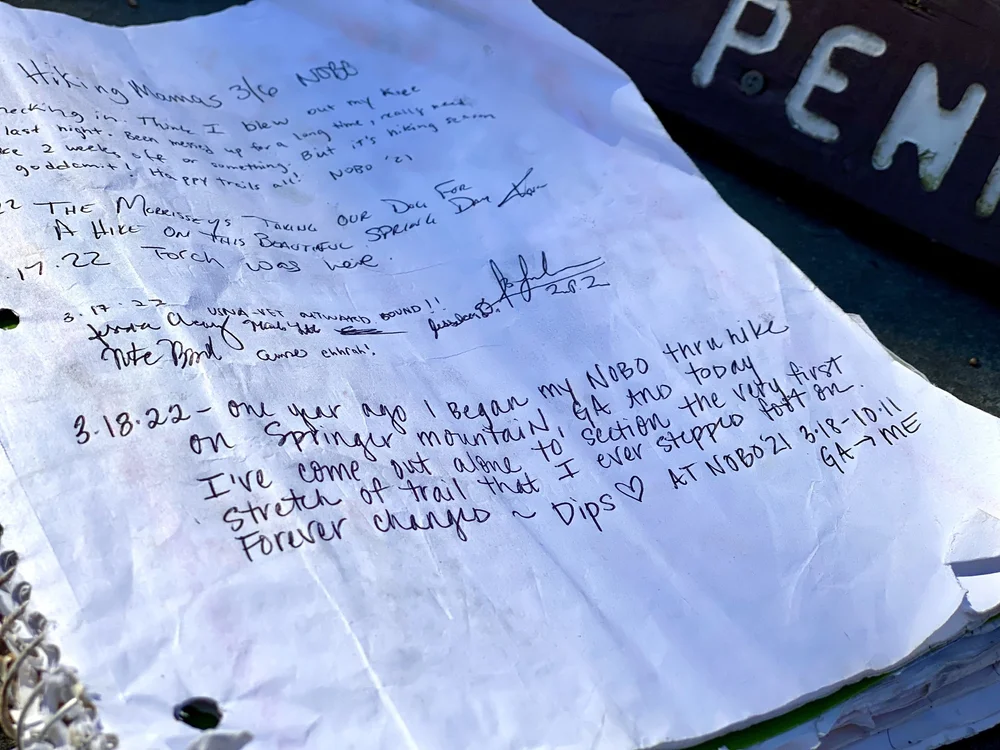 Hiking Mamas 3/6 NOBO
hecking in. Think I blew out my knee
last night. Been messed up for a long time, really need
2 weeks off or something. But it's hiking season
goddamit! Happy trails all! NOBO '21
22 THE MORRISSEYS TAKING OUR DOG FOR
A HIKE ON THIS BEAUTIFUL SPRING DAY
.17.22 Torch was here.
3.17.22 VET OUTWARD BOUND!!
2022
3.18.22 - one year ago I began my NOBO thru hike
on Springer mountaiN, GA AND today
I've come out alone to section the very first
stretch of trail that I ever stepped foot on.
Forever changed ~ Dips ♡ AT NOBO '21 3.18-10.11
GA → ME
PEN